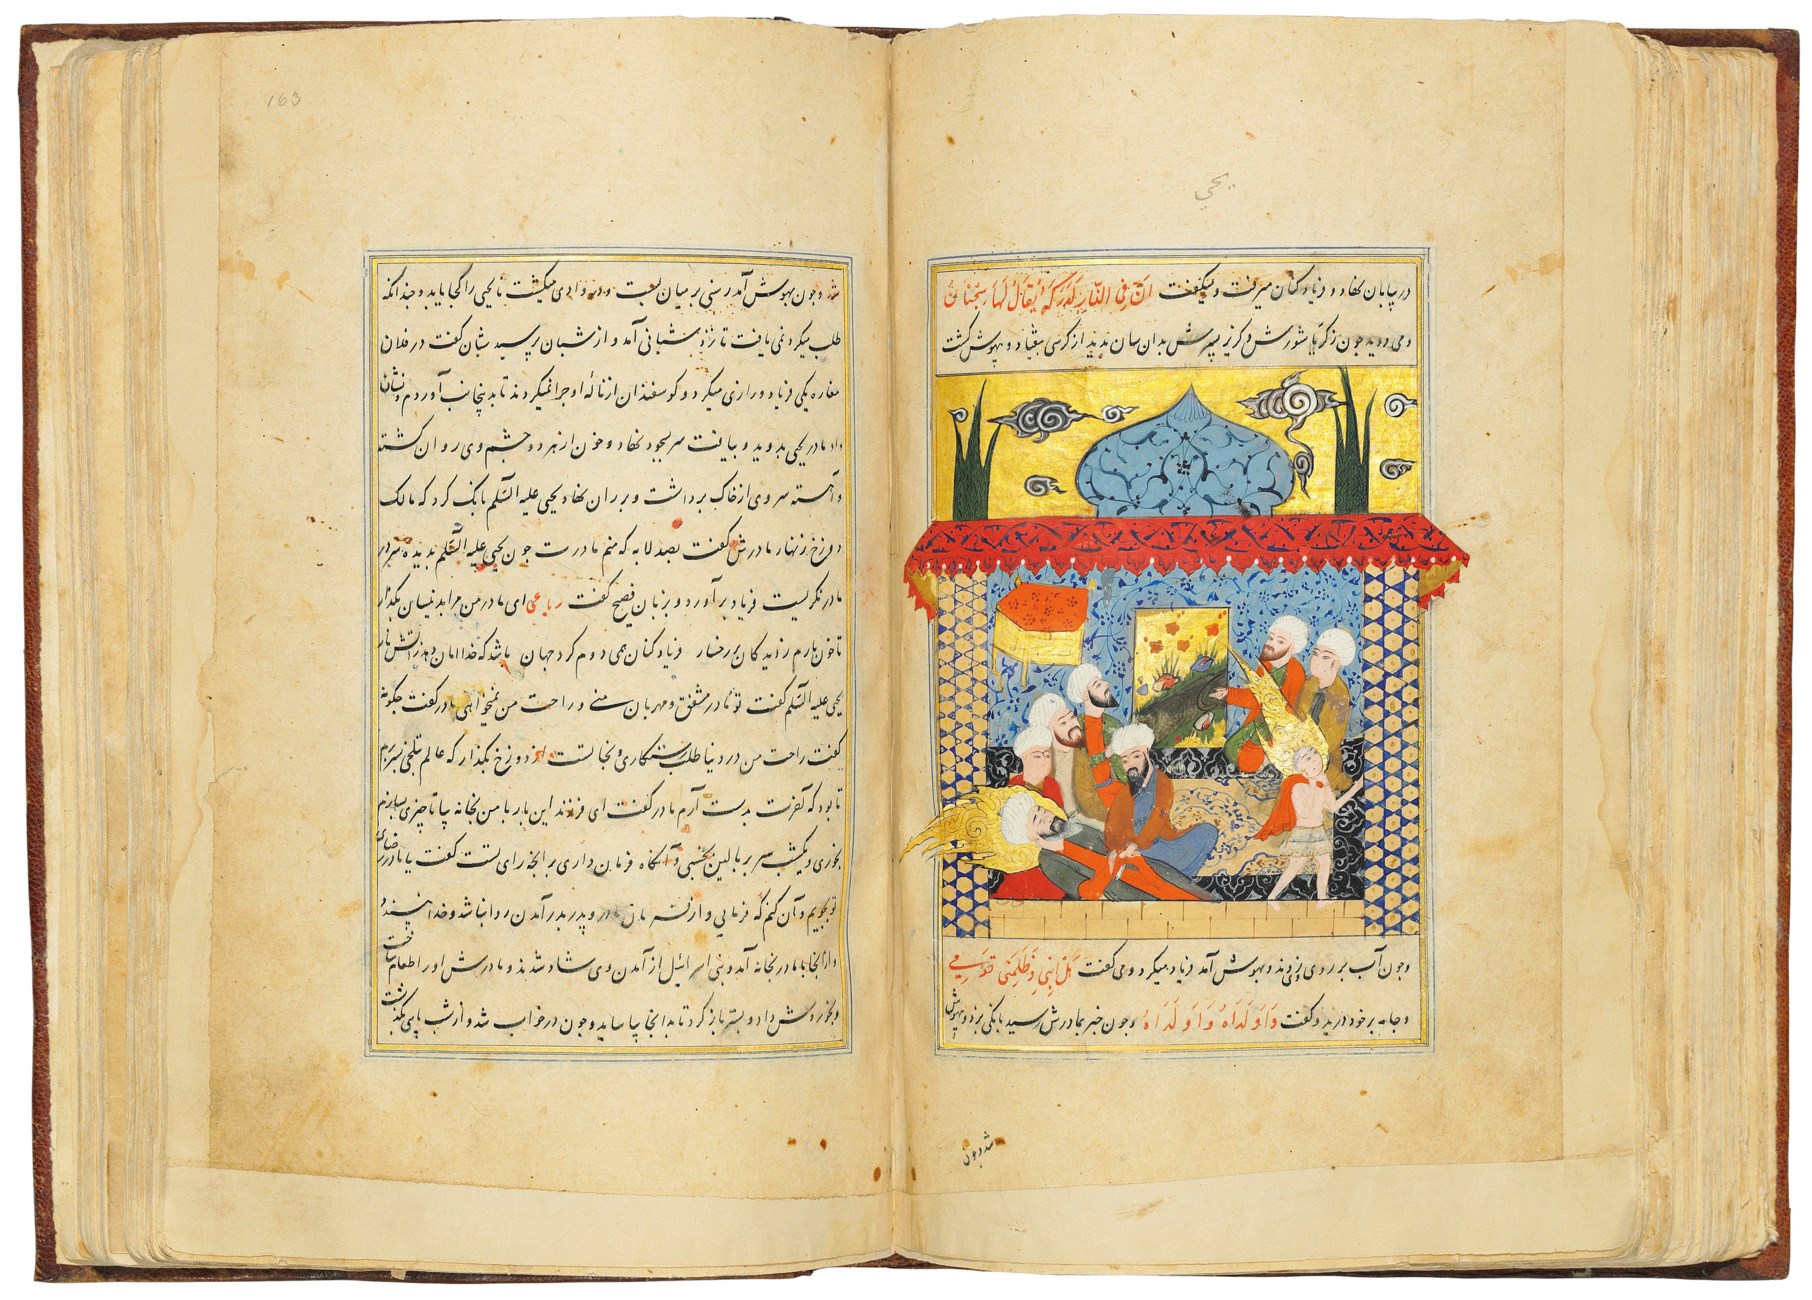 یحیی
در بیابان نهاد و فریاد کنان میرفت و میگفت اِنَّ فِی النَّارِ لَدَرَکَةً یُقَالُ لَهَا سجنان
و می دوید چون زکریا شورش و گریز پسرش بدان سان بدید از کرسی بیفتاد و بیهوش گشت
و چون آب بر روی وی زدند و بهوش آمد فریاد میکرد و می گفت
و جامه بر خود درید و گفت وَا وَلَدَاهُ وَا وَلَدَاهُ و چون خبر بمادرش رسید بانکی بزد و بیهوش
شد و چون
163
شد و چون بهوش آمد رسنی بر میان بست و در وادی میگشت تا یحیی را کجا یابد و چندانکه
طلب میکرد نمی یافت تا نزد شبانی آمد و از شبان پرسید شبان گفت در فلان
مغاره یکی فریاد و زاری میکرد و کوسفندان از نالهٔ او چرا نمیکردند تا بدینجانب آوردم و نشان
داد مادر یحیی بدوید و بیافت سر بسجود نهاده و خون از هر دو چشم وی روان گشته
و آهسته سر وی از خاک برداشت و بر ران نهاد یحیی علیه السّلم بانک کرد که مالک
دوزخ زنهار مادرش گفت بصد لابه که منم مادرت چون یحیی علیه السّلم بدیده سر در
مادر نگریست فریاد برآورد و بزبان فصیح گفت رباعی ای مادر من مرا بدینسان بگذار
تا خون بارم ز دیدگان بر رخسار فریاد کنان همی دوم گرد جهان باشد که خدا امان دهد ز آتش نار
یحیی علیه السّلم گفت تو مادر مشفق و مهربان منی و راحت من نمیخواهی مادر گفت چگونه
گفت راحت من در دنیا طلب رستکاری و نجاتست از دوزخ بگذار که عالم بتلخی بسر برم
تا بود که آخرت بدست آرم مادر گفت ای فرزند این بار با من بخانه بیا تا چیزی سازم
بخوری و یکشب سر بر بالین بخسبی و آنگاه فرمان داری بر آنچه رای تست گفت یا مادر رضای
تو بجویم و آن کنم که فرمایی و از فرمان مادر و پدر بدر آمدن روا نباشد و خدا نپسندد
و از آنجا با مادر بخانه آمد و بنی اسرائیل از آمدن وی شاد شدند و مادرش او را طعام ساخت
و بخوردش داد و بستر باز کرد تا بدانجا بیاساید و چون در خواب شد و از شب پاسی بگذشت